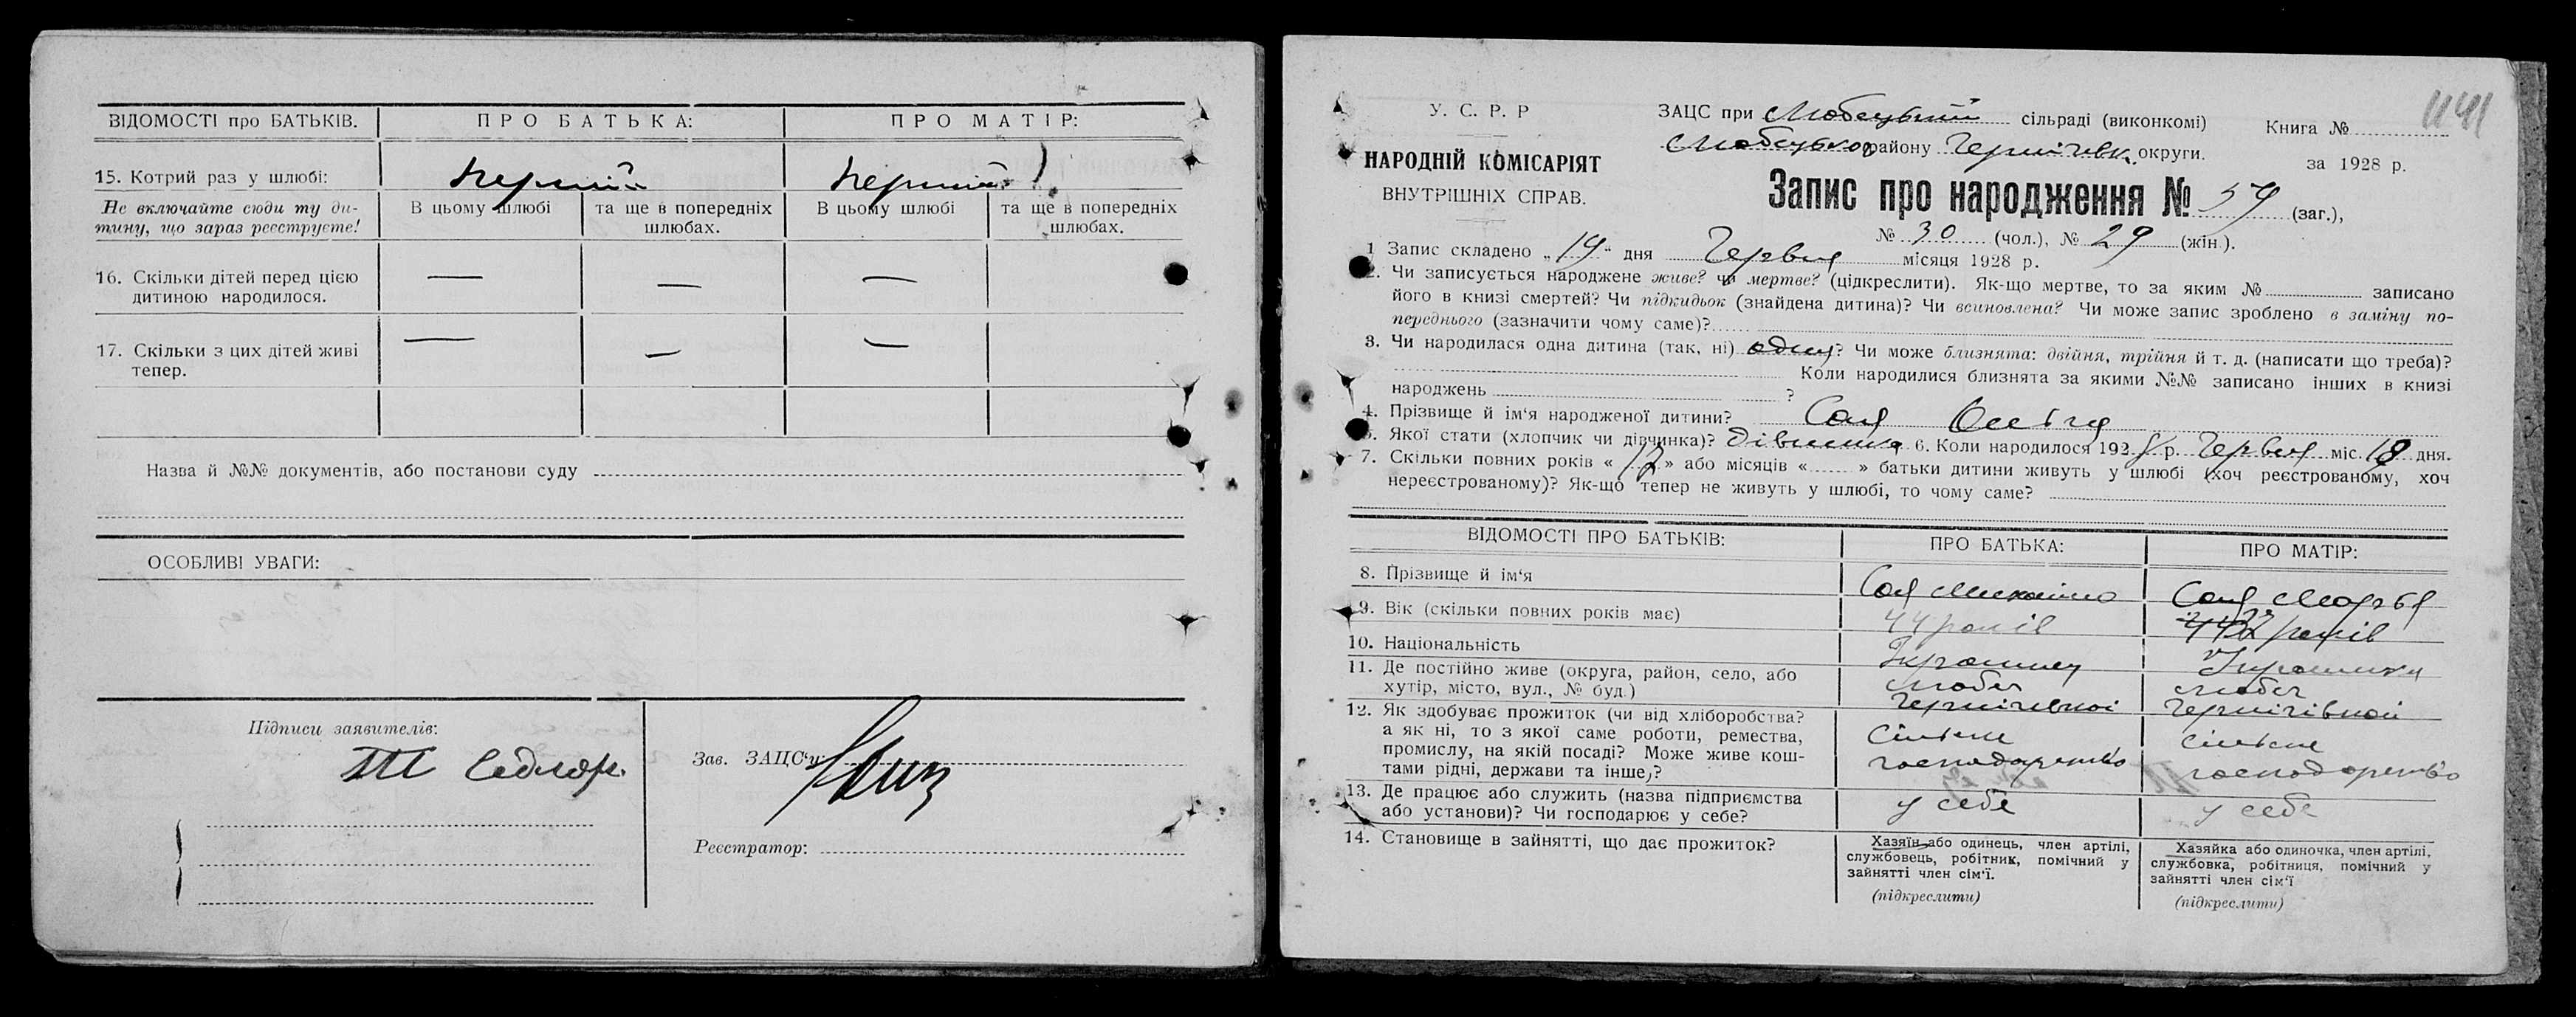 ВІДОМОСТІ про БАТЬКІВ.
ПРО БАТЬКА:
ПРО МАТІР:
15. Котрий раз у шлюбі:
перший
перший
Не включайте сюди ту ди-
тину, що зараз реєструєте!
В цьому шлюбі
та ще в попередніх
шлюбах.
В цьому шлюбі
та ще в попередніх
шлюбах.
16. Скільки дітей перед цією
дитиною народилося.
— — —
17. Скільки з цих дітей живі
тепер.
— — —
Назва й №№ документів, або постанови суду
ОСОБЛИВІ УВАГИ:
Підписи заявителів:
Зав. ЗАЦС'у
Реєстратор:
1141
У. С. Р. Р
НАРОДНІЙ КОМІСАРІЯТ
ВНУТРІШНІХ СПРАВ.
ЗАЦС при Любецький сільраді (виконкомі)
Любецького району Чернігівк. округи.
Книга №
за 1928 р.
Запис про народження № 59 (заг.),
№ 30 (чол.), № 29 (жін.).
1 Запис складено „19“ дня Червня місяця 1928 р.
2. Чи записується народжене живе? чи мертве? (цідкреслити). Як-що мертве, то за яким № записано
його в книзі смертей? Чи підкидьок (знайдена дитина)? Чи всиновлена? Чи може запис зроблено в заміну по-
переднього (зазначити чому саме)?
3. Чи народилася одна дитина (так, ні) одна? Чи може близнята: двійня, трійня й т. д. (написати що треба)?
Коли народилися близнята за якими №№ записано інших в книзі
народжень ?
4. Прізвище й ім'я народженої дитини? Соя
5. Якої стати (хлопчик чи дівчинка)? дівчинка 6. Коли народилося 1928 р. Червня міс. 18 дня.
7. Скільки повних років « 12 » або місяців « » батьки дитини живуть у шлюбі (хоч реєстрованому, хоч
нереєстрованому)? Як-що тепер не живуть у шлюбі, то чому саме?
ВІДОМОСТІ ПРО БАТЬКІВ:
ПРО БАТЬКА:
ПРО МАТІР:
8. Прізвище й ім'я
Соя Михайло
Соя Марья
9. Вік (скільки повних років має)
44 років
років
10. Національність
Українец
Українка
11. Де постійно живе (округа, район, село, або
хутір, місто, вул., № буд.)
Любеч
Чернігівної
Любеч
Чернігівной
12. Як здобуває прожиток (чи від хліборобства?
а як ні, то з якої саме роботи, ремества,
промислу, на якій посаді? Може живе кош-
тами рідні, держави та інше)?
Сільске
господарство
сільске
господарство
13. Де працює або служить (назва підприємства
або установи)? Чи господарює у себе?
у себе
у себе
14. Становище в зайнятті, що дає прожиток?
Хазяїн або одинець, член артілі,
службовець, робітник, помічний у
зайнятті член сім'ї.
(підкреслити)
Хазяйка або одиночка, член артілі,
службовка, робітниця, помічний у
зайнятті член сім'ї
(підкреслити)